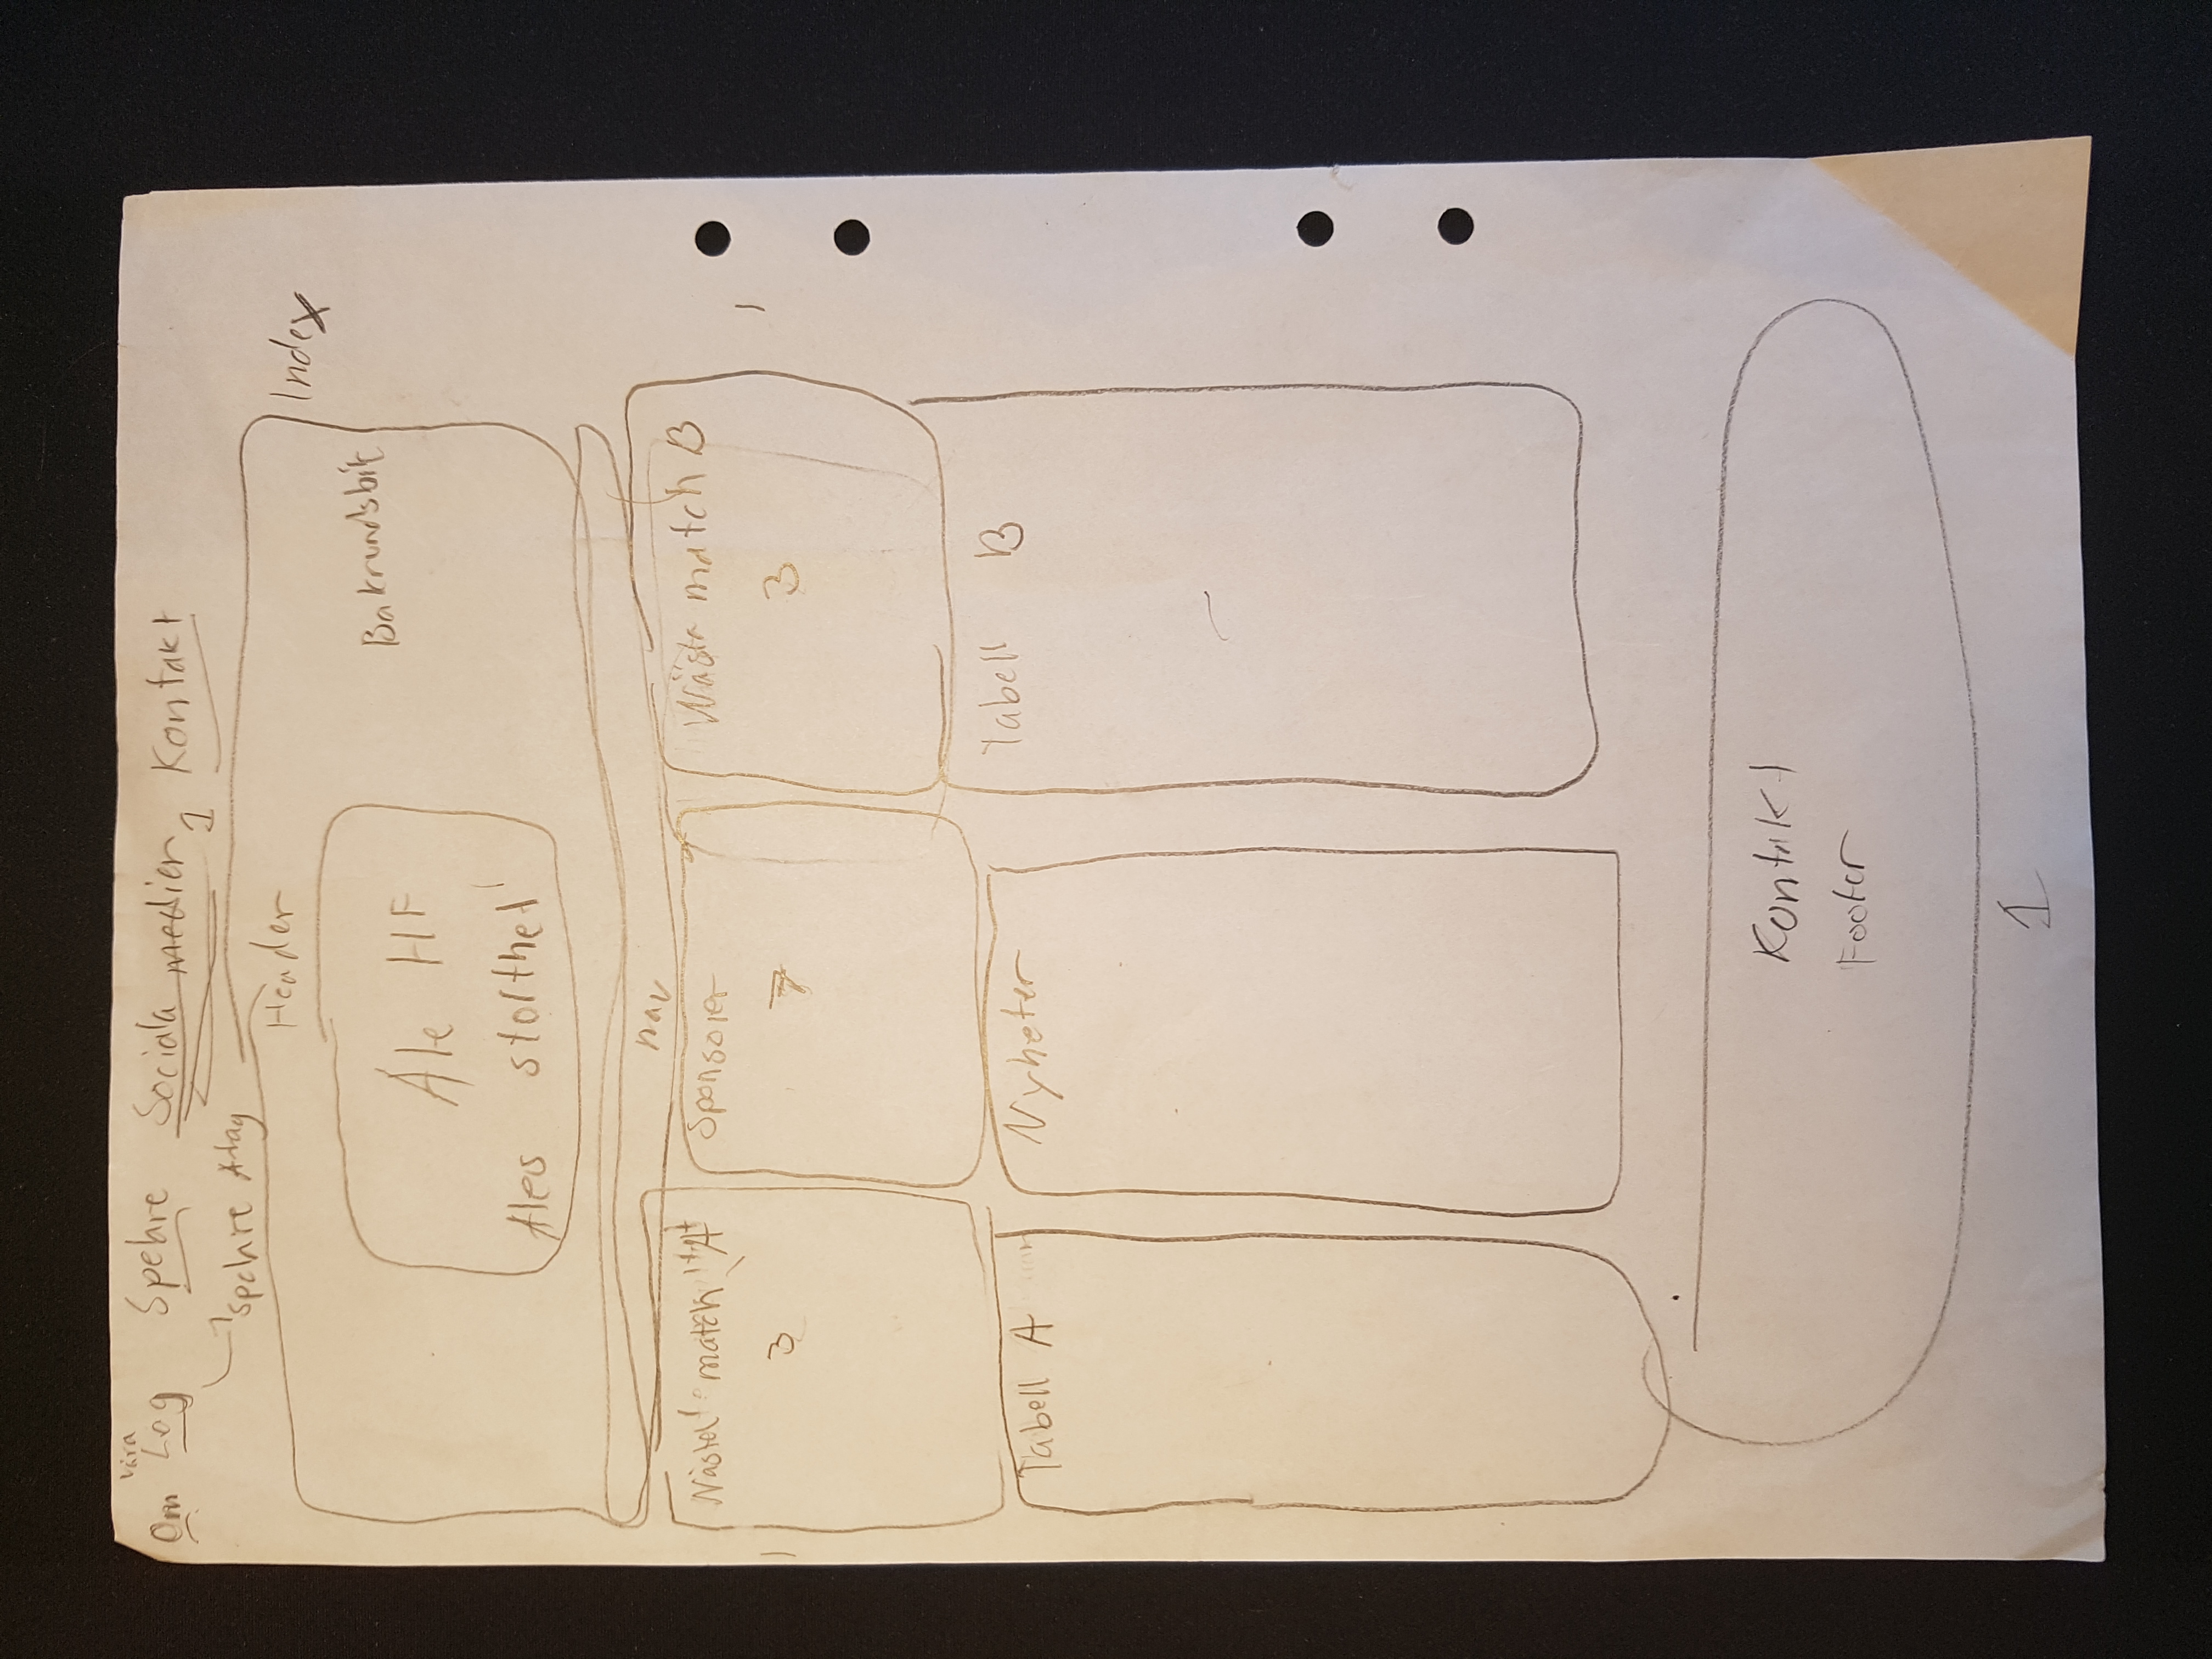 våra
Om Lag Spelare Sociala medier Kontakt
1
Spelare A-lag
Header
Index
Bakrundsbil
Ale HF
Ales stolthet
nav
Nästa match A
Sponsorer
Nästa match B
3
7
3
Tabell A
Nyheter
Tabell B
Kontakt
Footer
1